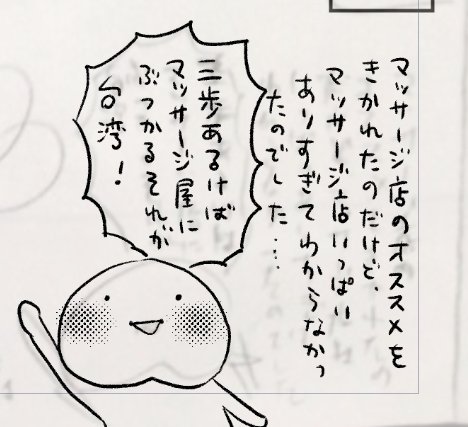 マッサージ店のオススメを
きかれたのだけど、
マッサージ店いっぱい
ありすぎてわからなかっ
たのでした…
三歩あるけば
マッサージ屋に
ぶつかるそれが
台湾！